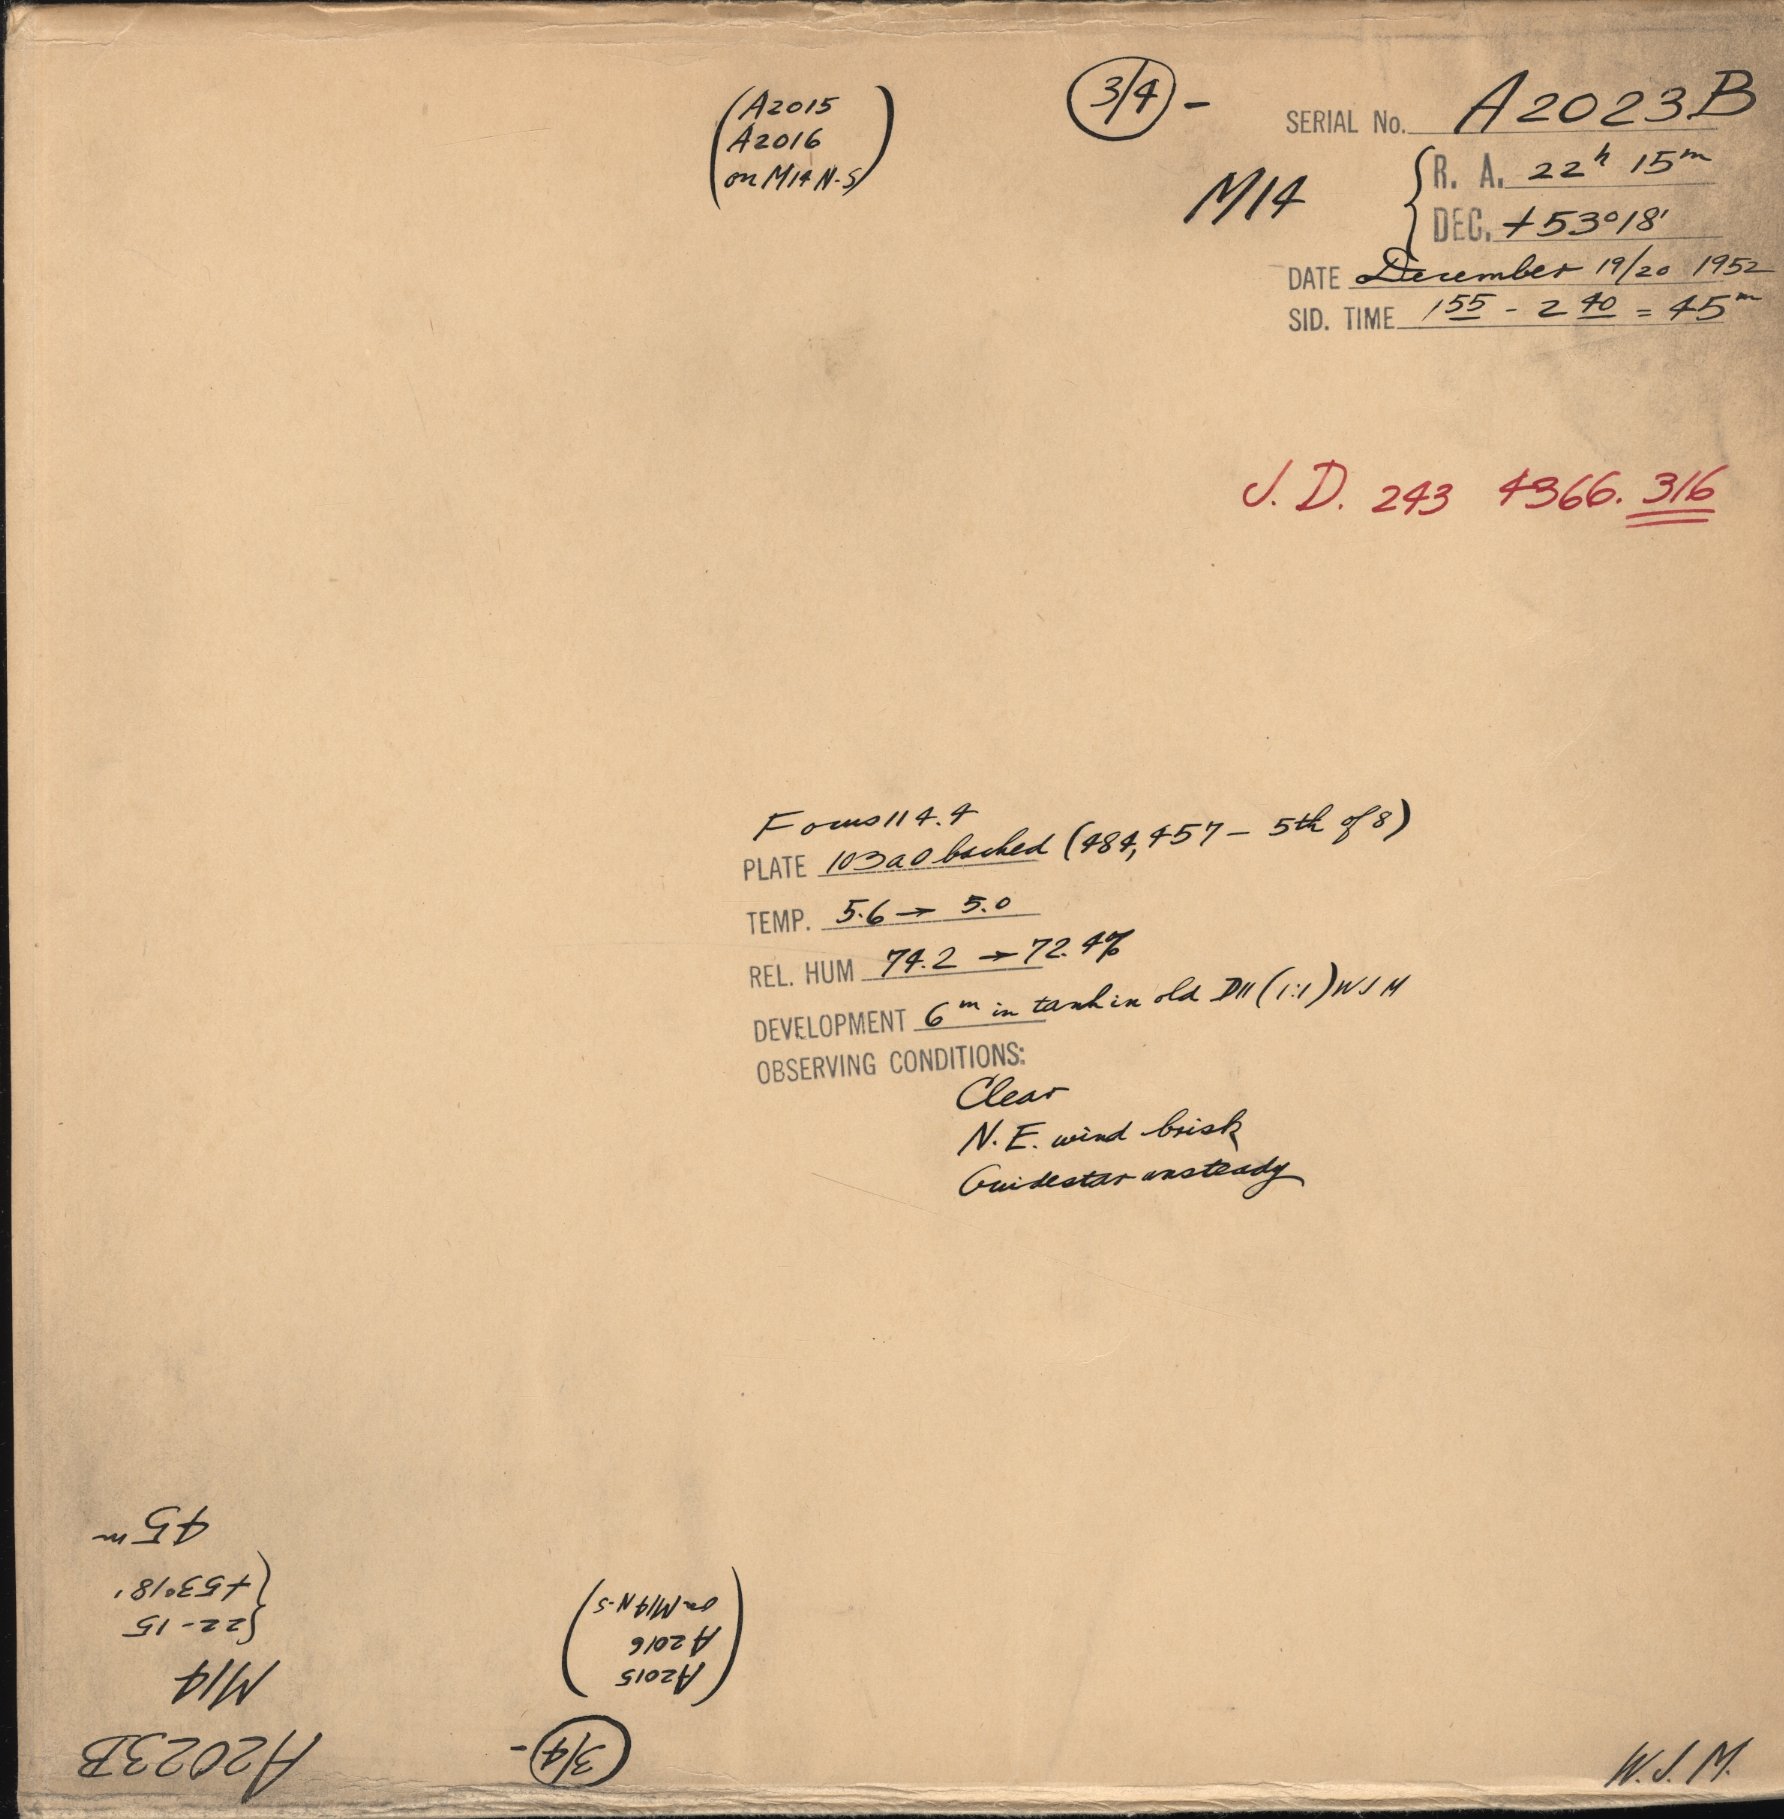 (A2015
A2016
on M14 N-S)
3/4 -
SERIAL No. A2023B
M14
R. A. 22h 15m
DEC. +53°18'
DATE December 19/20 1952
SID. TIME 1 55 - 2 40 = 45m
J. D. 243 4366.316
Focus 114.4
PLATE 103aO backed (484,457 - 5th of 8)
TEMP. 5.6 → 5.0
REL. HUM 74.2 → 72.4%
DEVELOPMENT 6m in tank in old D11 (1:1) WJM
OBSERVING CONDITIONS:
Clear
N.E. wind brisk
Guidestar unsteady
W.J.M.
A2023B
M14
22-15
+53°18'
45m
3/4 -
(A2015
A2016
on M14 N-S)